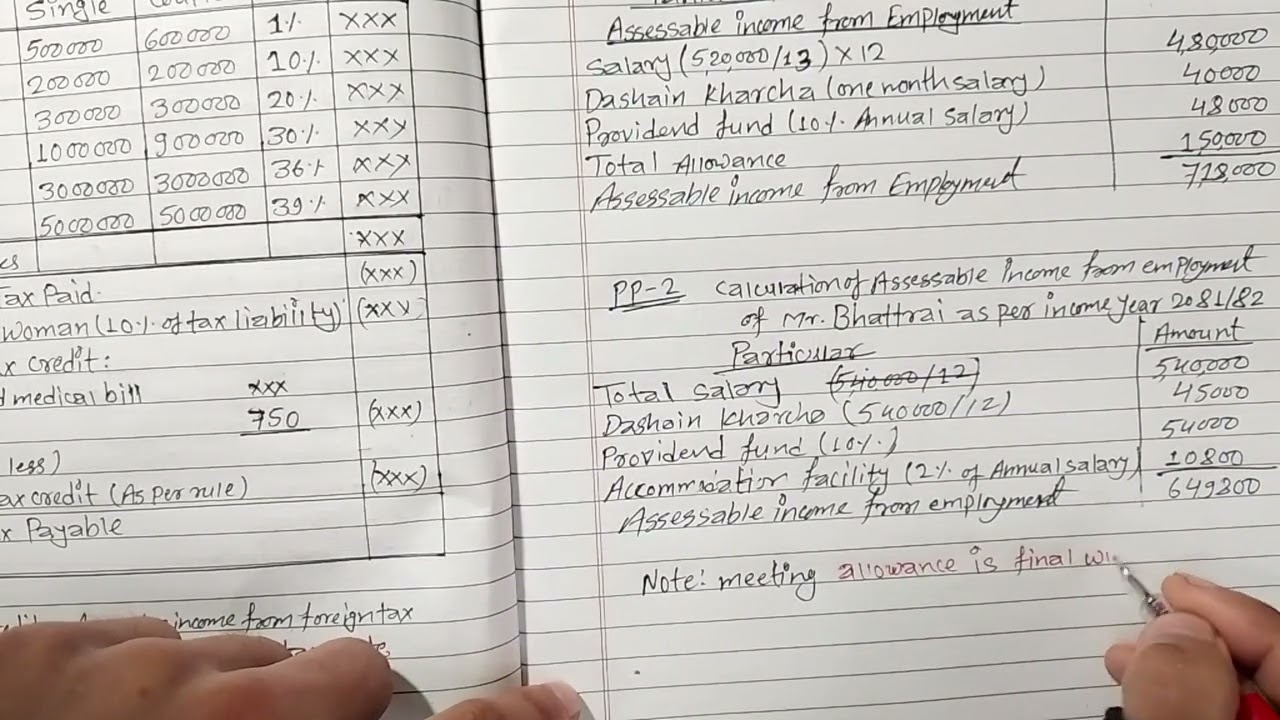 Single
500000 600000 1% XXX
200000 200000 10% XXX
300000 300000 20% XXX
1000000 900000 30% XXY
3000000 3000000 36% XXY
5000000 5000000 39% XXX
XXX
ax Paid. (XXX)
woman (10% of tax liability) (XXY
x credit:
d medical bill XXX
750 (XXX)
less)
ax credit (As per rule) (XXX)
x Payable
income from foreign tax
Assessable income from Employment
Salary (5,20,000/13) X 12 480000
Dashain kharcha (one month salary) 40000
Providend fund (10% Annual salary) 48000
Total Allowance 150000
Assessable income from Employment 718,000
PP-2 Calculation of Assessable Income from employment
of Mr. Bhattrai as per income year 2081/82
Particular Amount
Total salary (540000/12) 540000
Dashain kharcha (540000/12) 45000
Providend fund (10%) 54000
Accommodation facility (2% of Annual salary) 10800
Assessable income from employment 649800
Note: meeting allowance is final wi